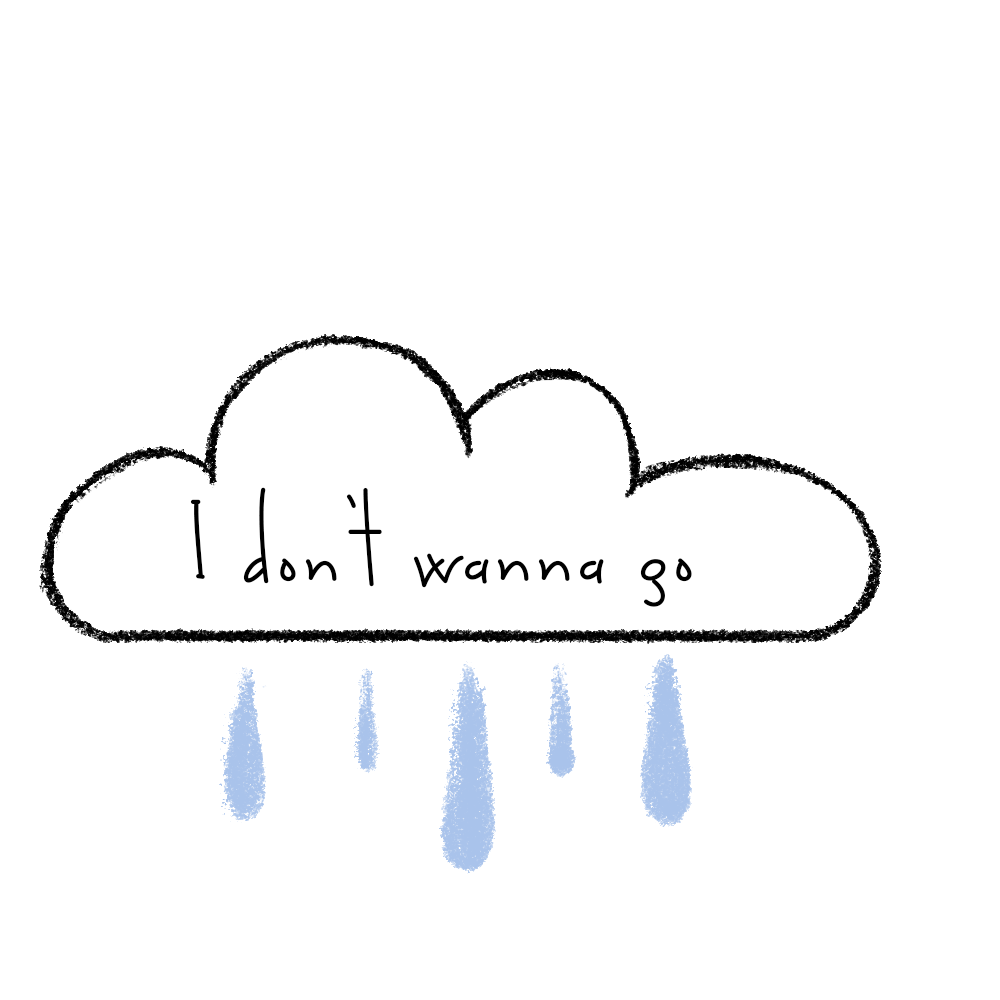 I don't wanna go